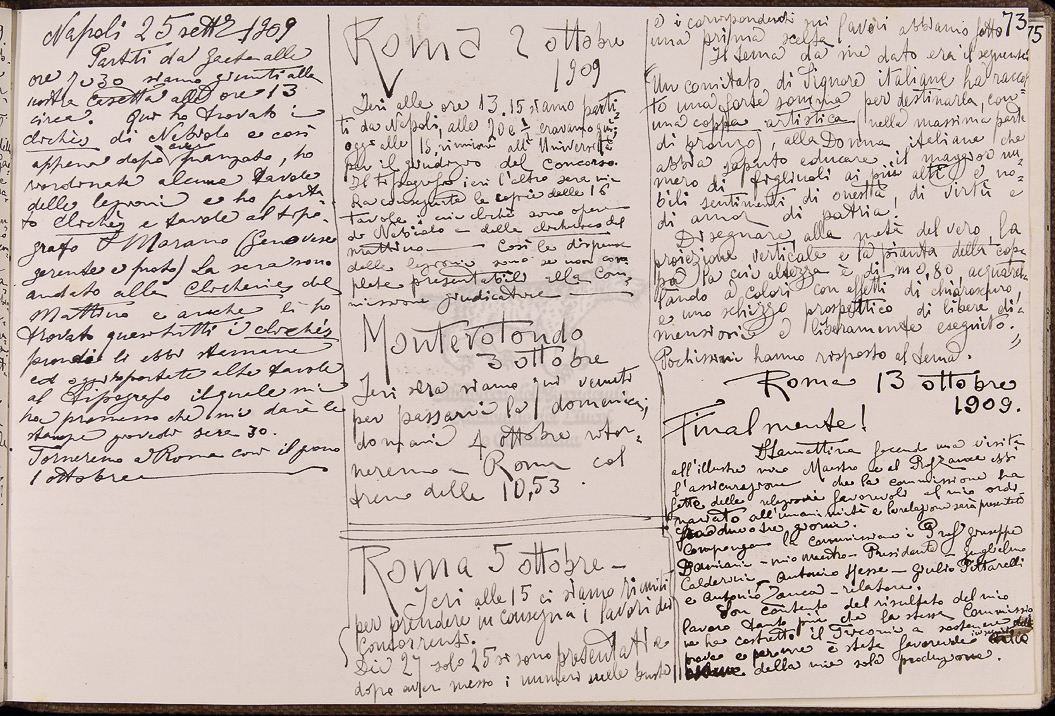 73
75
Napoli 25 sett.e 1909
Partiti da Gaeta alle
ore 7 e 30 siamo giunti alla
nostra casetta alle ore 13
circa. Qui ho trovato i
clichès di Nebiolo e così
appena dopo aver pranzato, ho
riordinate alcune tavole
delle lezioni e ho porta
to clichès e tavole al tipo-
grafo Morano (Genovese
gerente e proto) La sera sono
andato alla Clicheria del
Mattino e anche lì ho
trovato quasi tutti i clichès
ed oggi riportate alte tavole
al tipografo il quale mi
ha promesso che mi darà le
stampe giovedì sera 30.
Torneremo a Roma con il primo
1 ottobre
Roma 2 ottobre
1909
Ieri alle ore 13.15 siamo parti
ti da Napoli, alle 20 e ½ eravamo qui;
oggi alle 15, riunioni all'Università
per il giudizio del concorso.
Il tipografo ieri l'altro sera mi
ha consegnate le copie delle 16
tavole i cui clichès sono opera
di Nebiolo e della clicheria del
mattino Così le dispense
delle lezioni sono se non com
plete presentabili alla Com-
missione giudicatrice
Monterotondo
3 ottobre
Ieri sera siamo qui venuti
per passarvi la domenica;
domani 4 ottobre ritor-
neremo a Roma col
treno delle 10,53.
Roma 5 ottobre
Ieri alle 15 ci siamo riuniti
per prendere in consegna i lavori dei
concorrenti.
Di 27 solo 25 si sono presentati e
dopo aver messo i numeri sulle buste
e i corrispondenti sui lavori abbiamo fatto
una prima scelta
Il tema da me dato era il seguente
"Un comitato di Signore italiane ha racco
to una forte somma per destinarla, con
una coppa artistica (nella massima parte
di bronzo), alla Donna italiana che
abbia saputo educare il maggior nu
mero di figliuoli ai più alti e no-
bili sentimenti di onestà, di virtù e
di amor di patria.
Disegnare alla metà del vero, la
proiezione verticale e la pianta della cop
pa (la cui altezza è di m 0,80, acquarel
lando a colori con effetti di chiaroscuro,
e uno schizzo prospettico di libere di-
mensioni e liberamente eseguito."
Pochissimi hanno risposto al tema.
Roma 13 ottobre
1909.
Finalmente!
Stamattina facendo una visita
all'illustre mio Maestro e al Prof Zanca essi
l'assicurazione che la commissione ha
fatto delle relazioni favorevoli al mio ordi
nariato all'unanimità e la relazione sarà presentata
fra due o tre giorni.
Compongono la commissione i Prof. Giuseppe
Damiani - mio maestro - Presidente Guglielmo
Calderini, Antonio Hesse - Giulio Pittarelli
e Antonio Zanca - relatore.
Son contento del risultato del mio
lavoro tanto più che la stessa Commissio
ne ha costretto il Tirconi a sostenere delle
prove e per me è stata favorevole in seguito
della mia sola produzione.